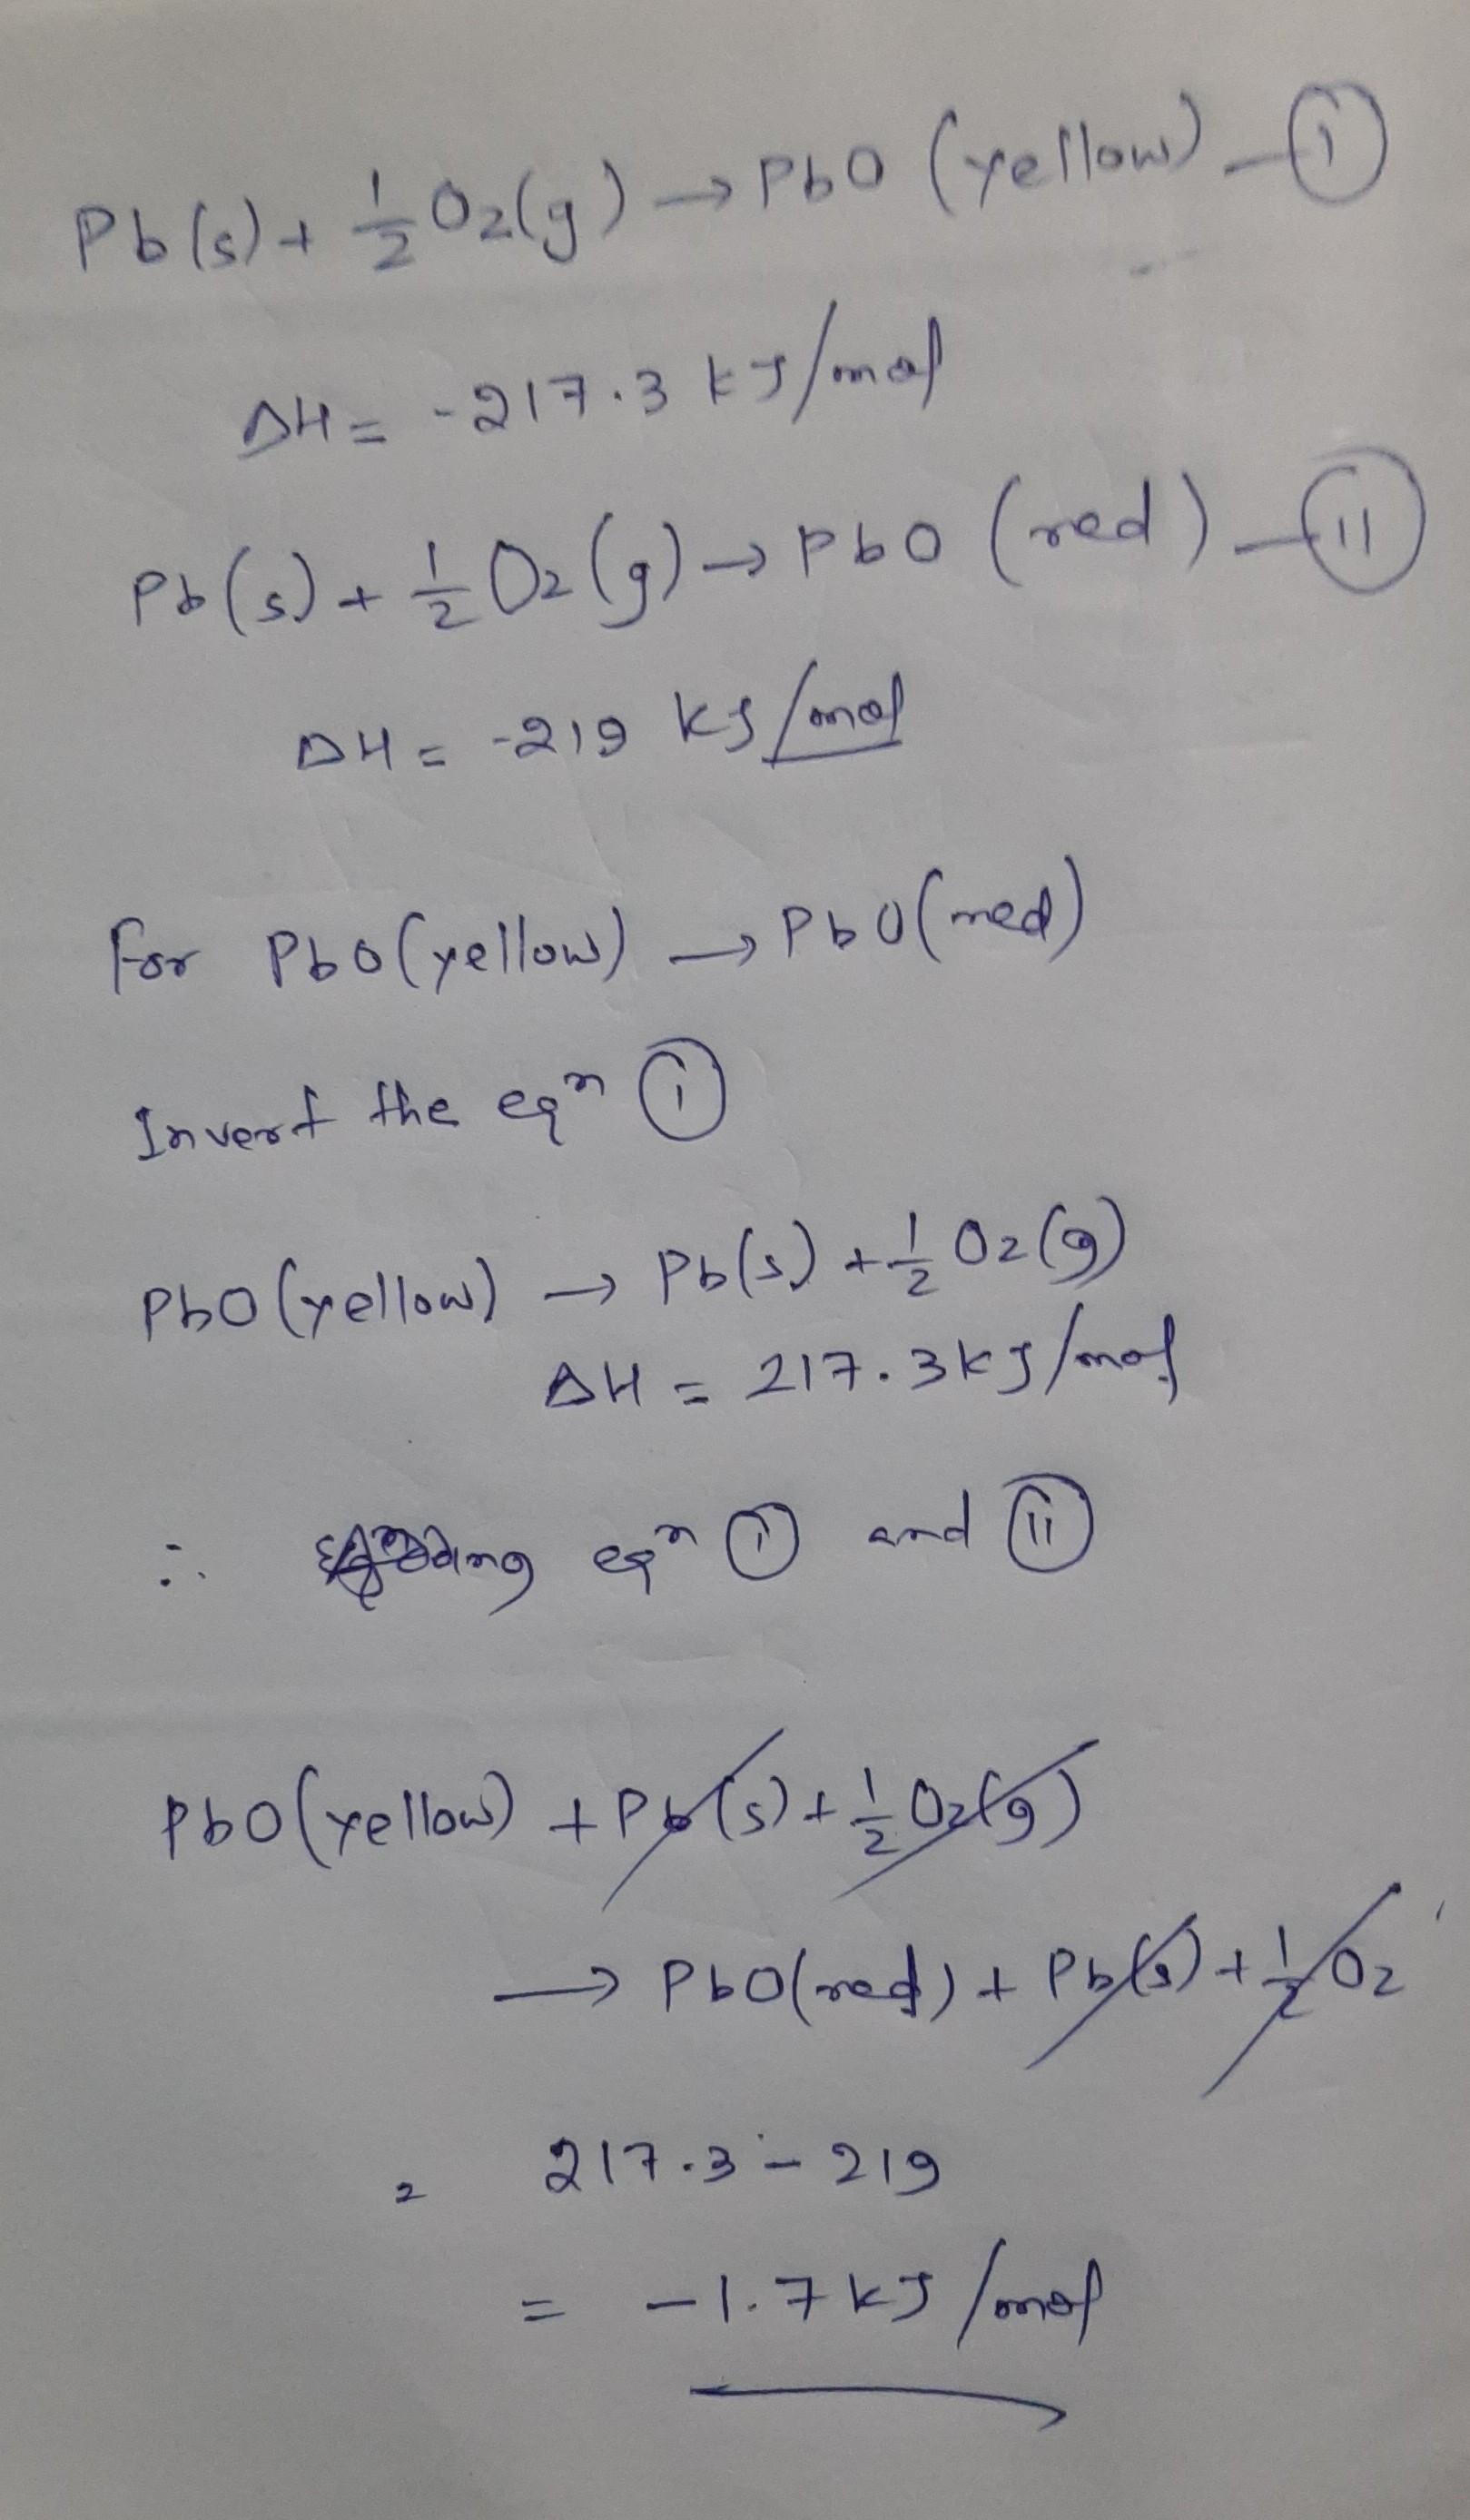 Pb(s) + 1/2 O2(g) → PbO (yellow) — (i)
ΔH = -217.3 kJ/mol
Pb(s) + 1/2 O2(g) → PbO (red) — (ii)
ΔH = -219 kJ/mol
For PbO(yellow) → PbO(red)
Invert the eqn (i)
PbO(yellow) → Pb(s) + 1/2 O2(g)
ΔH = 217.3 kJ/mol
∴ eqn (i) and (ii)
PbO(yellow) + Pb(s) + 1/2 O2(g)
→ PbO(red) + Pb(s) + 1/2 O2
= 217.3 - 219
= -1.7 kJ/mol